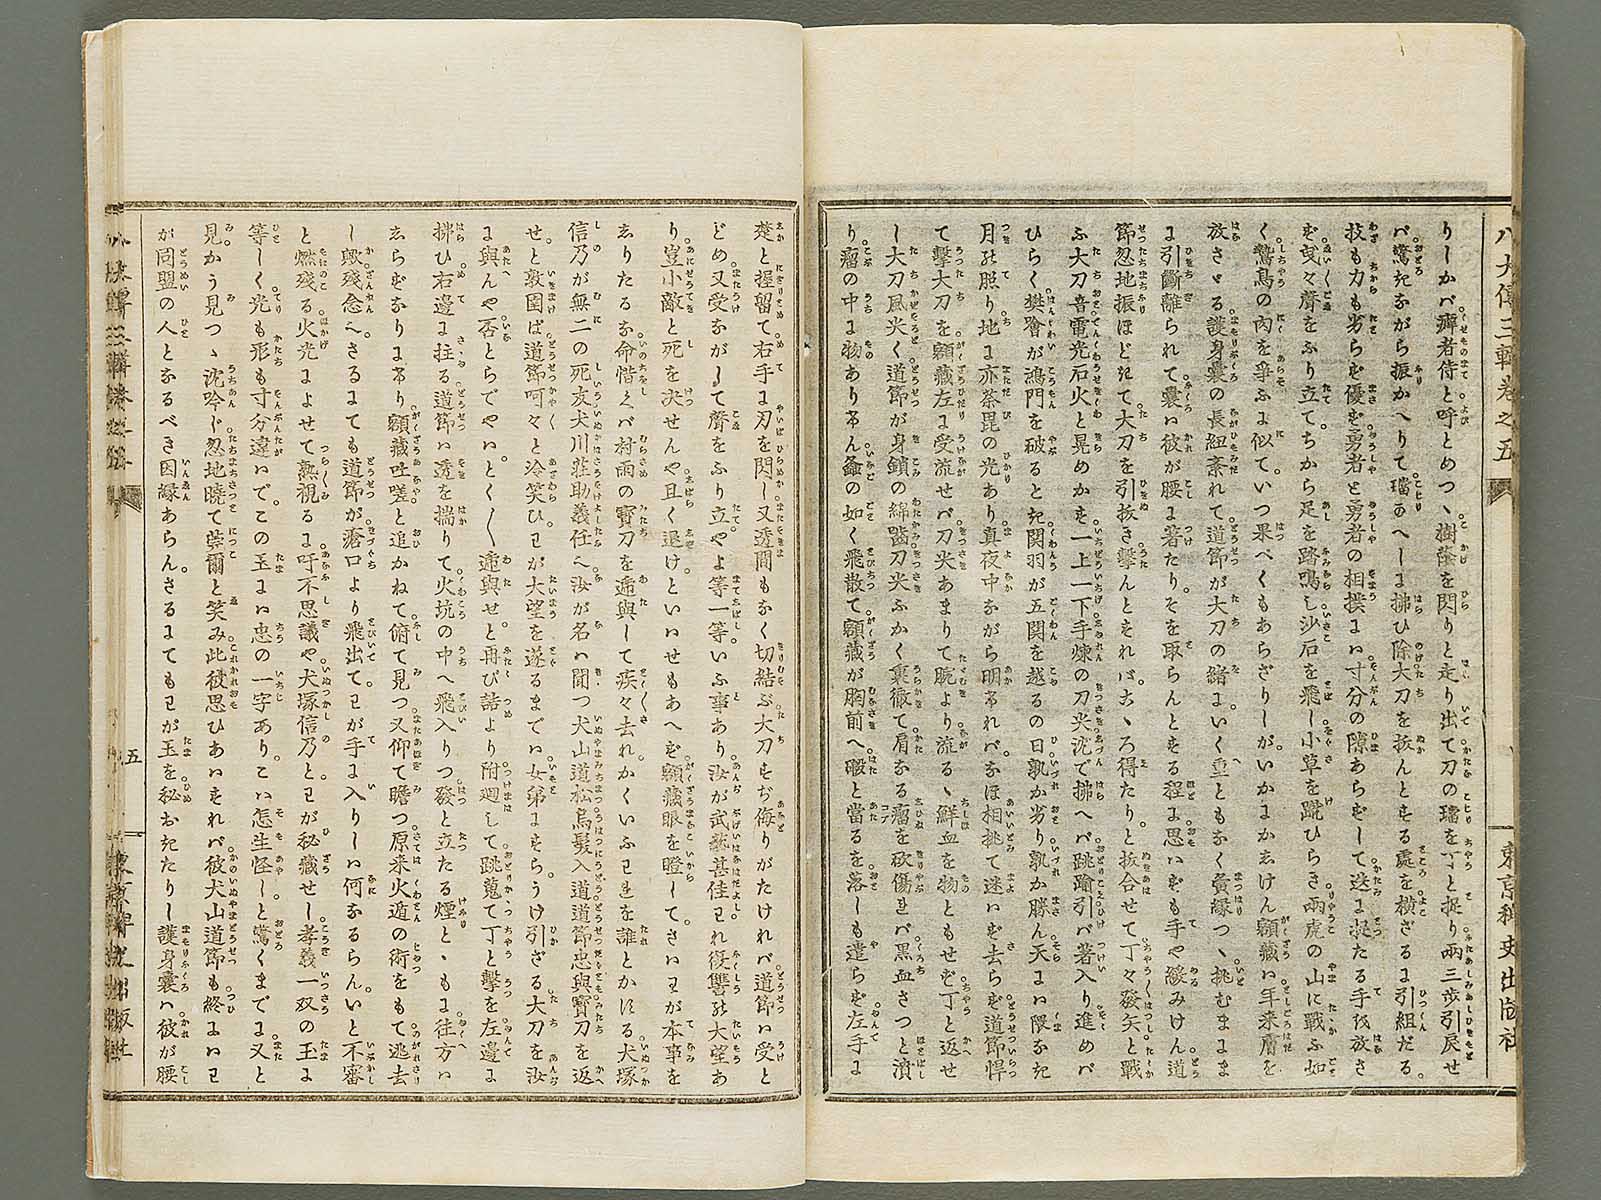 八犬傳三輯卷之五
東京稗史出版社
りしかバ癖者侍と呼とめつゝ樹蔭を閃りと走り出て刀の璫を丁と捉り兩三歩引戻せ
バ驚きながら振かへりて璫あへしま拂ひ除大刀を拔んとする處を横ざまに引組だる。
技も力も劣らぬ優ず勇者と勇者の相撲には寸分の隙あらずして迭に捉たる手を放さ
ず曳々聲をふり立てちから足を踏鳴し沙石を飛し小草を蹴ひらき兩虎の山に戰ふ如
く鷙鳥の肉を爭ふに似て。いつ果べくもあらざりしが。いかにかしけん額藏は年來膚を
放さゞる護身嚢の長紐紊れて道節が大刀の緒にいく重ともなく夤縁つゝ挑むまにま
に引斷離られて嚢は彼が腰に著たり。そを取らんとする程に思はずも手や緩みけん道
節忽地振ほどきて大刀を引抜き撃んとすれバこゝろ得たり。と拔合せて丁々發矢と戰
ふ大刀音電光石火と晃めかす一上一下手煉の刀尖沈で拂へバ跳踰引バ著入り進めバ
ひらく樊噲が鴻門を破ると關羽が五関を越るの日孰か劣り孰か勝ん天には隈なき
月の照り地に亦荼毘の光あり真夜中ながら明けれバなほ相挑て迷はず去らず道節悍
て撃大刀を額藏左に受流せバ刀尖あまりて腕より流るゝ鮮血を物ともせず丁と返せ
し大刀風尖く道節が身鎖の綿齧刀尖ふかく裏徹て肩なる瘤を砍傷れバ黒血さつと濆
り瘤の中に物ありけん螽の如く飛散て額藏が胸前へ礑と當るを落しも遣らず左手に
楚と握留て右手に刃を閃し又透間もなく切結ぶ大刀すぢ侮りがたけれバ道節は受と
どめ又受ながして聲をふり立やよ等一等。いふ事あり。汝が武藝甚佳われ復讐の大望あ
り豈小敵と死を決せんや且く退けといはせもあへず額藏眼を瞪して。さはわが本事を
しりたるな命惜くバ村雨の寶刀を逓與して疾々去れ。かくいふわれを誰とかする犬塚
信乃が無二の死友犬川莊助義任へ汝が名は聞つ犬山道松烏髮入道道節忠與寶刀を返
せ。と敦圉ば道節呵々と冷笑ひ。わが大望を遂るまでは女弟にすらうけ引ざる大刀を汝
に與んや否とらでやは。とく〱逓與せ。と再び詰より附廻して跳蒐て丁と撃を左邊に
拂ひ右邊に拄る道節は透を揣りて火坑の中へ飛入りつ發と立たる煙とゝもに往方は
しらずなりにけり額藏吐嗟と追かねて俯て見つ又仰て瞻つ原來火遁の術をもて逃去
し歟殘念へ。さるにても道節が瘡口より飛出てわが手に入りしは何なるらん。いと不審
と燃殘る火光によせて熟視るに吁不思議や犬塚信乃と。わが秘藏せし孝義一双の玉に
等しく光も形も寸分違はで。この玉には忠の一字あり。こは怎生怪し。と驚くまでに又と
見かう見つゝ沈吟じ忽地曉て莞爾と笑み此彼思ひあはすれバ彼犬山道節も終にはわ
が同盟の人となるべき因縁あらん。さるにてもわが玉を秘おきたりし護身嚢ハ彼が腰
五